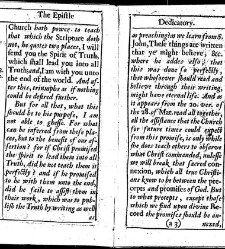 The Epistle
Church hath power to teach
that which the Scripture doth
not, he quotes two places, I will
send you the Spirit of Truth,
which shall lead you into all
Truth: and, I am with you unto
the end of the world. And af-
ter this, triumphs as if nothing
could be desired further.
But for all that, what this
should be to his purpose, I am
not able to guess. For what
can be inferred from these pla-
ces, but to the honour of our as-
sertion? for if Christ promised
the Spirit to lead them into all
Truth, did he not teach them it
perfectly? and if he promised
to be with them unto the end,
did he fail to assist them in
their work, which was to pub-
lish the Truth by writing as well
as
Dedicatory.
as preaching? as we learn from S.
John, These things are written
that ye might believe, &c.
where he adds also; that
this was done so perfectly,
that whosoever should read and
believe through their writing,
might have eternal life. And as
it appears from the 20. ver. of
the 28. of Mat. read all together,
as the assistance that the Church
for future times could expect
from Christ, is only while
she does teach others to observe
what Christ commanded, unless
we will break that sacred con-
nexion, which all true Christi-
ans know to be between the pre-
cepts and promises of God. But
to what precepts, except those
which we find upon divine Re-
cord the promises should be an-
(a 3)
nexed,